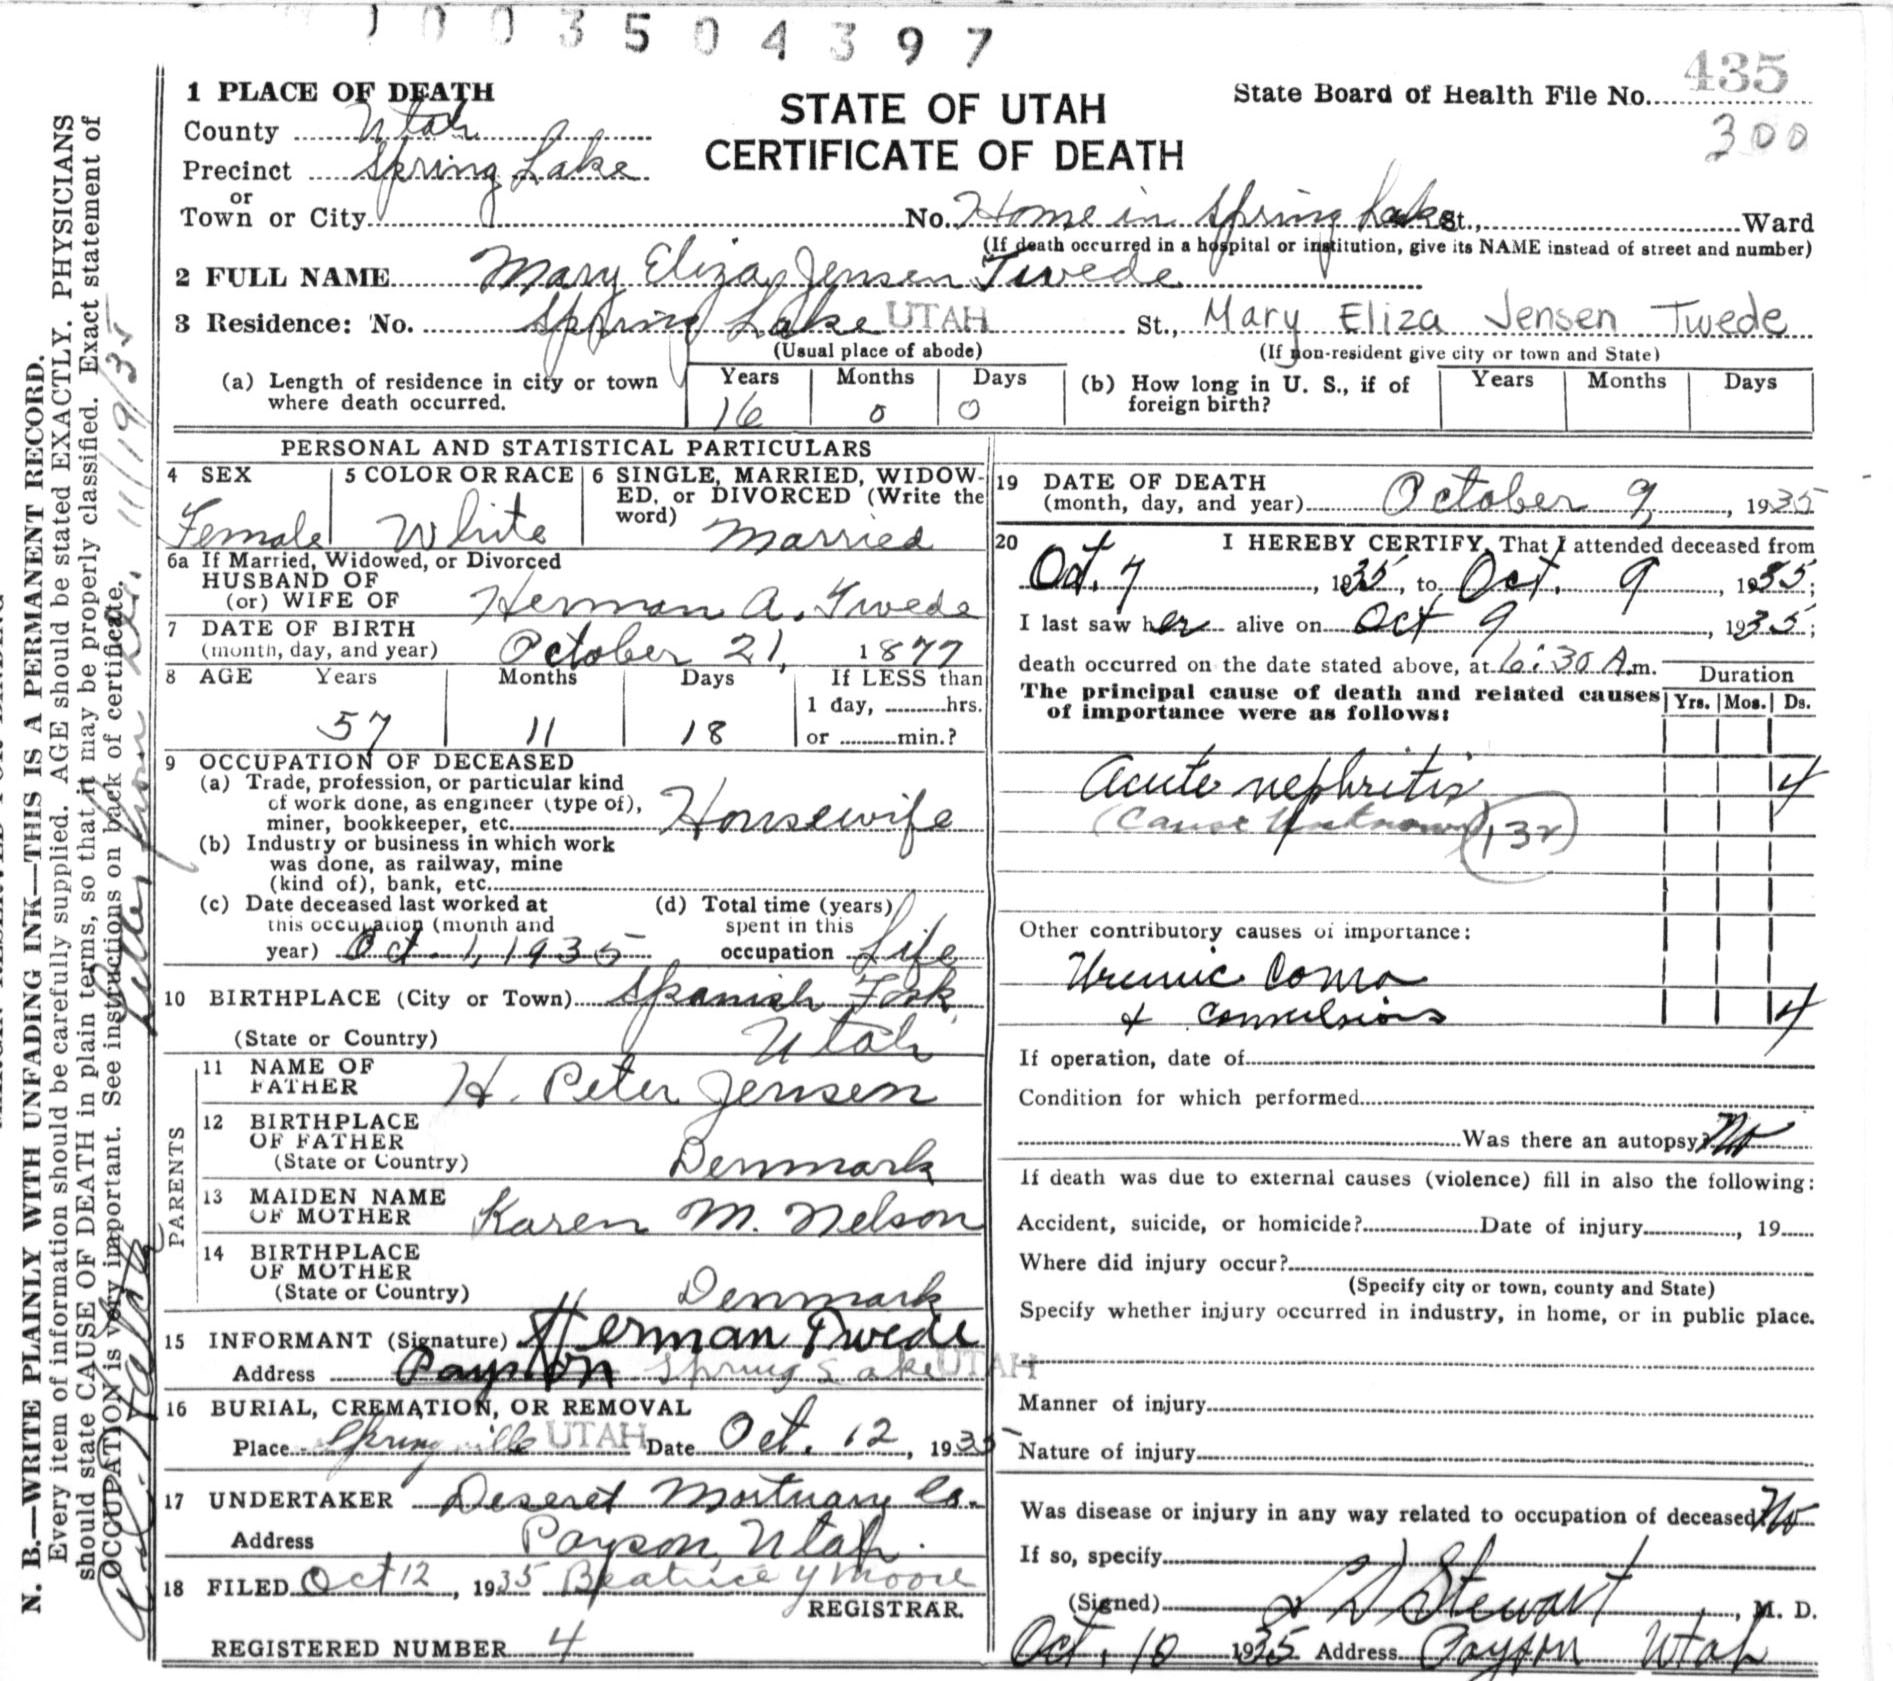 1003504397
435
State Board of Health File No.
300
STATE OF UTAH
CERTIFICATE OF DEATH
1 PLACE OF DEATH
County Utah
Precinct Spring Lake
or
Town or City No. Home in Spring Lake St., Ward
(If death occurred in a hospital or institution, give its NAME instead of street and number)
2 FULL NAME Mary Eliza Jensen Twede
3 Residence: No. Spring Lake UTAH St., Mary Eliza Jensen Twede
(Usual place of abode) (If non-resident give city or town and State)
(a) Length of residence in city or town where death occurred. Years 16 Months 0 Days 0
(b) How long in U. S., if of foreign birth? Years Months Days
PERSONAL AND STATISTICAL PARTICULARS
4 SEX Female
5 COLOR OR RACE White
6 SINGLE, MARRIED, WIDOWED, or DIVORCED (Write the word) Married
6a If Married, Widowed, or Divorced
HUSBAND OF
(or) WIFE OF Herman A. Twede
7 DATE OF BIRTH
(month, day, and year) October 21, 1877
8 AGE Years 57 Months 11 Days 18
If LESS than
1 day, hrs.
or min.?
9 OCCUPATION OF DECEASED
(a) Trade, profession, or particular kind
of work done, as engineer (type of),
miner, bookkeeper, etc. Housewife
(b) Industry or business in which work
was done, as railway, mine
(kind of), bank, etc.
(c) Date deceased last worked at
this occupation (month and
year) Oct. 1, 1935
(d) Total time (years)
spent in this
occupation Life
10 BIRTHPLACE (City or Town) Spanish Fork
(State or Country) Utah
PARENTS
11 NAME OF
FATHER H. Peter Jensen
12 BIRTHPLACE
OF FATHER
(State or Country) Denmark
13 MAIDEN NAME
OF MOTHER Karen M. Nelson
14 BIRTHPLACE
OF MOTHER
(State or Country) Denmark
15 INFORMANT (Signature) Herman Twede
Address Payston Spring Lake UTAH
16 BURIAL, CREMATION, OR REMOVAL
Place Springville UTAH Date Oct. 12, 1935
17 UNDERTAKER Deseret Mortuary Co.
Address Payson, Utah.
18 FILED Oct 12, 1935 Beatrice Y Moore
REGISTRAR.
REGISTERED NUMBER 4
19 DATE OF DEATH
(month, day, and year) October 9, 1935
20 I HEREBY CERTIFY, That I attended deceased from
Oct. 7, 1935, to Oct. 9, 1935;
I last saw her alive on Oct 9, 1935;
death occurred on the date stated above, at 6:30 A.m.
The principal cause of death and related causes
of importance were as follows:
Duration
Yrs. Mos. Ds.
Acute nephritis 4
(Cause Unknown) 132
Other contributory causes of importance:
Uremic Coma
& convulsions 4
If operation, date of
Condition for which performed
Was there an autopsy? No
If death was due to external causes (violence) fill in also the following:
Accident, suicide, or homicide? Date of injury, 19
Where did injury occur?
(Specify city or town, county and State)
Specify whether injury occurred in industry, in home, or in public place.
Manner of injury
Nature of injury
Was disease or injury in any way related to occupation of deceased? No
If so, specify
(Signed) L D Stewart, M. D.
Oct. 10 1935 Address Payson Utah
N. B.—WRITE PLAINLY WITH UNFADING INK—THIS IS A PERMANENT RECORD.
Every item of information should be carefully supplied. AGE should be stated EXACTLY. PHYSICIANS
should state CAUSE OF DEATH in plain terms, so that it may be properly classified. Exact statement of
OCCUPATION is very important. See instructions on back of certificate.
11/19/35